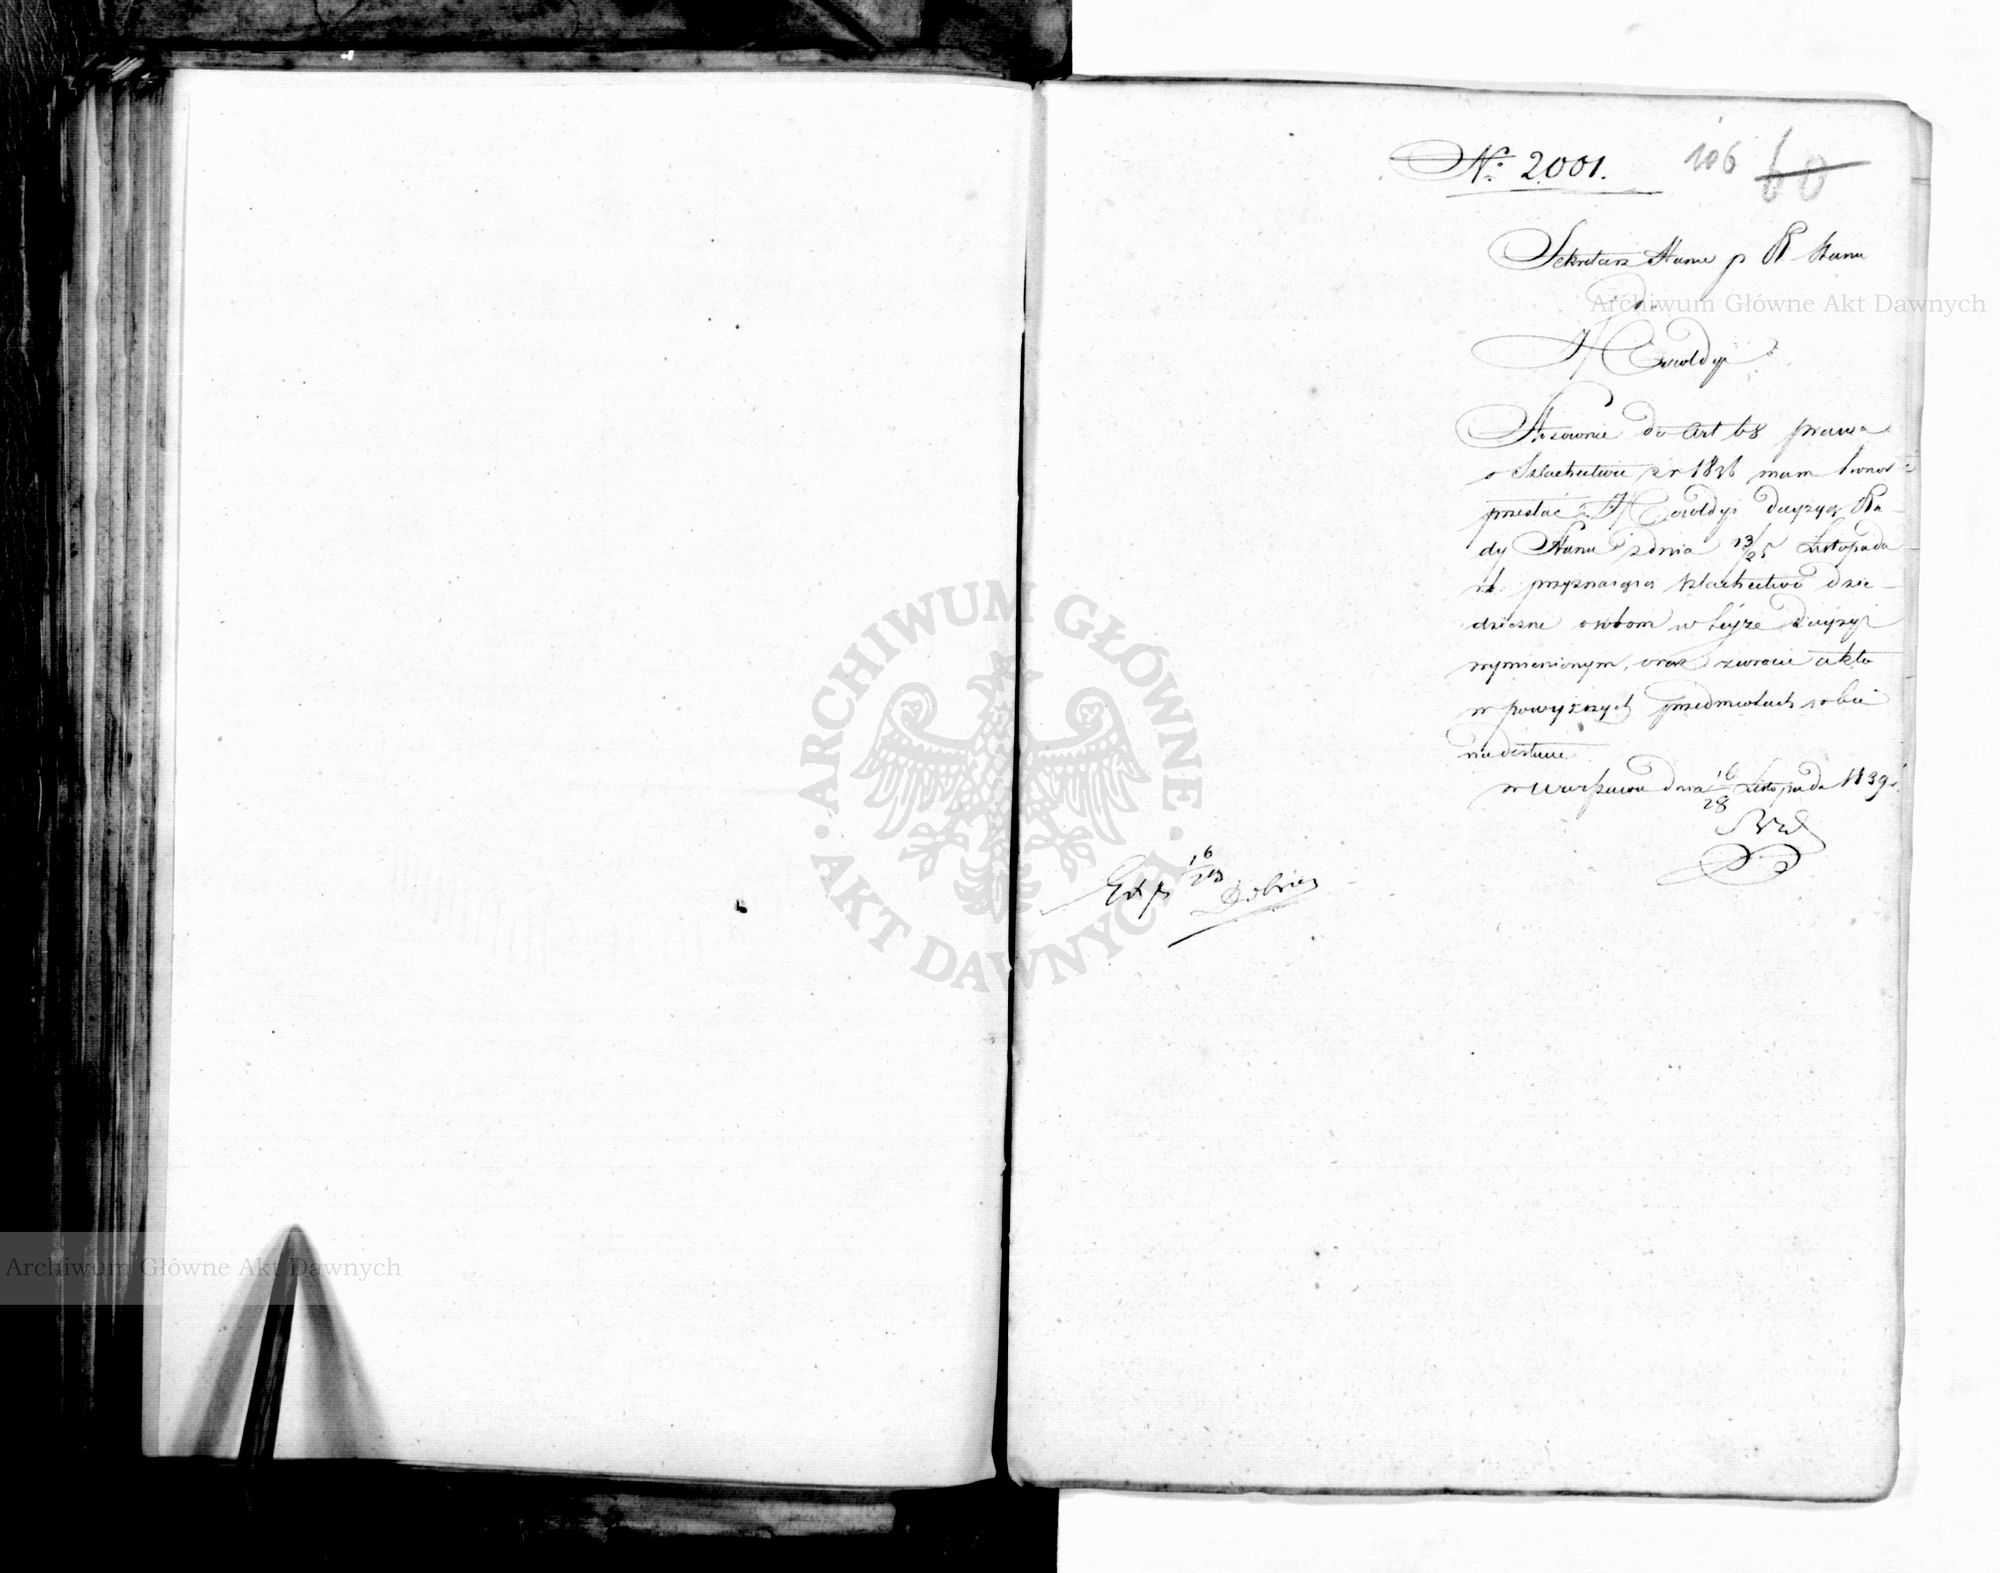 № 2001.
106 60
Sekretarz Stanu p R. Stanu
Do
Heroldyi
Stosownie do Art 68 prawa
o Szlachectwie z r 1836 mam honor
przesłać Heroldyi decyzyą Ra-
dy Stanu z dnia 13/25 Listopada
r.b. przyznaiącą szlachectwo dzie-
dziczne osobom w teyże decyzyi
wymienionym, oraz zwrócić akta
w powyższych przedmiotach sobie
nadesłane
w Warszawie dnia 16/28 Listopada 1839 r.
Exp 16/28
ARCHIWUM GŁÓWNE
AKT DAWNYCH
Archiwum Główne Akt Dawnych
Archiwum Główne Akt Dawnych